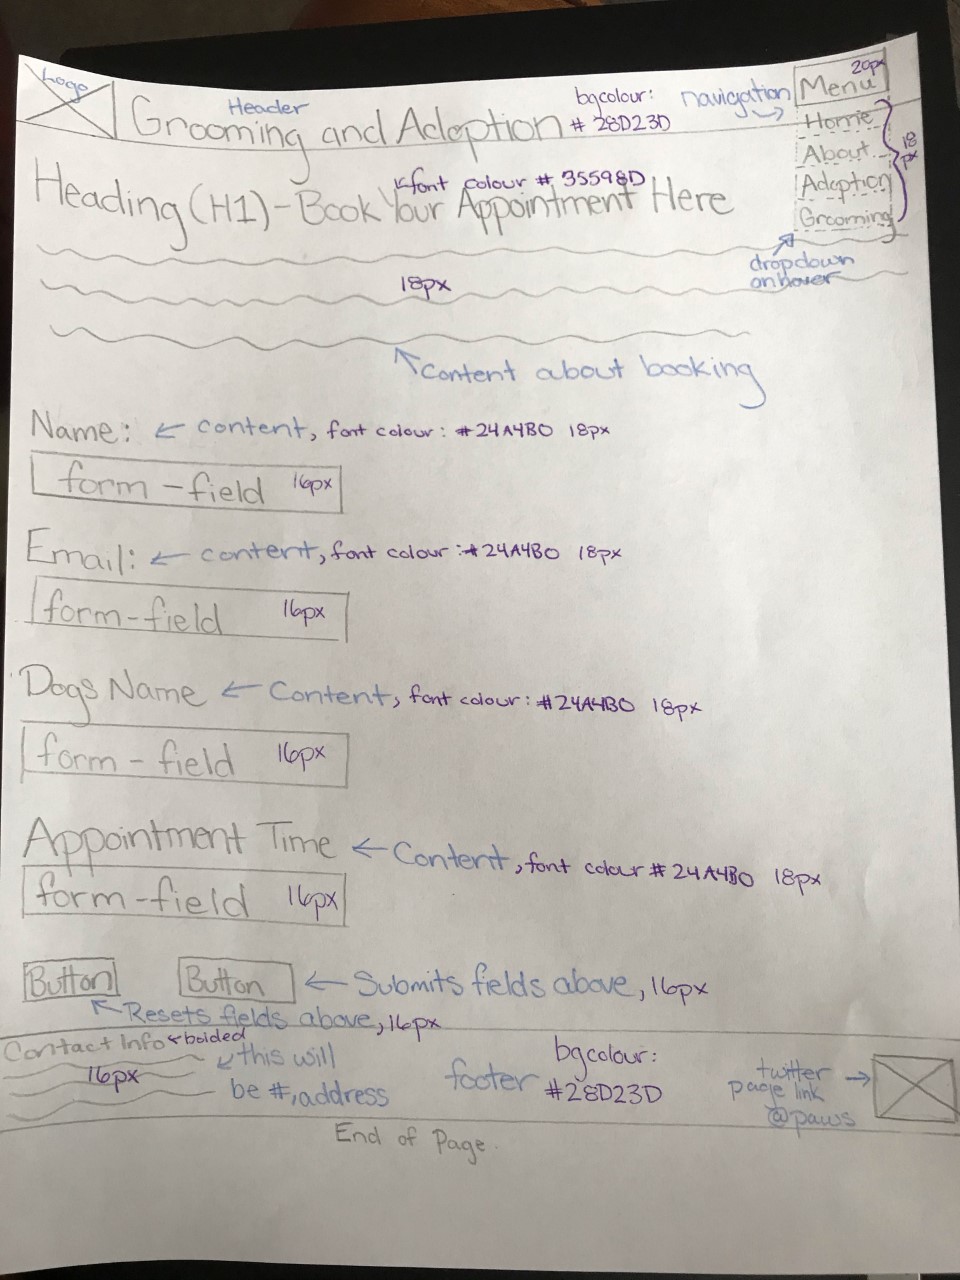 Logo
Header
Grooming and Adoption
bgcolour:
# 28D23D
navigation
Menu 20px
Home
About
Adoption
Grooming
18
px
dropdown
on hover
font colour # 35598D
Heading (H1) - Book Your Appointment Here
18px
Content about booking
Name: content, font colour: #24A4B0 18px
form-field 16px
Email: content, font colour: #24A4B0 18px
form-field 16px
Dogs Name Content, font colour: #24A4B0 18px
form-field 16px
Appointment Time Content, font colour #24A4B0 18px
form-field 16px
Button Button Submits fields above, 16px
Resets fields above, 16px
Contact Info bolded
16px
this will
be #, address
footer
bgcolour:
#28D23D
twitter
page link
@paws
End of Page.